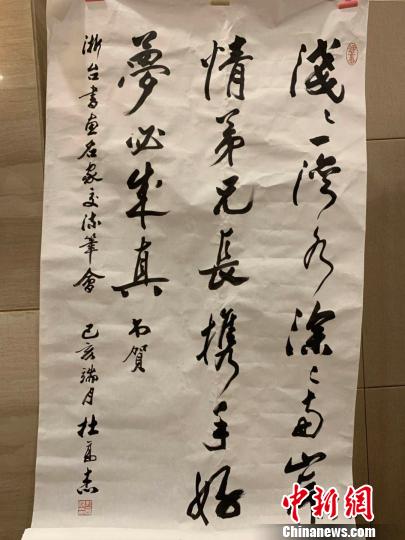 淺〻一灣水深〻兩岸
情弟兄長携手好
夢必成真 賀
浙台書画名家交流筆會 己亥端月 杜高杰
中新網
Chinanews.com